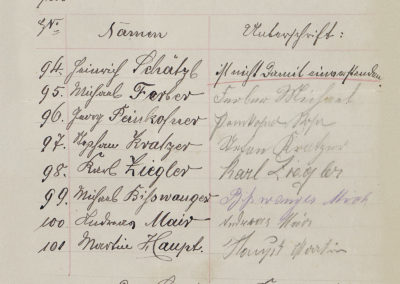 No. Namen Unterschrift:
94. Heinrich Schätzl ist nicht damit einverstanden.
95. Michael Ferber Ferber Michael
96. Georg Peinkofner
97. Stephan Kratzer Stefan Kratzer
98. Karl Ziegler Karl Ziegler
99. Michael Bißwanger Bißwanger Mich
100. Andreas Mair Andreas Mair
101. Martin Haupt. Haupt Martin